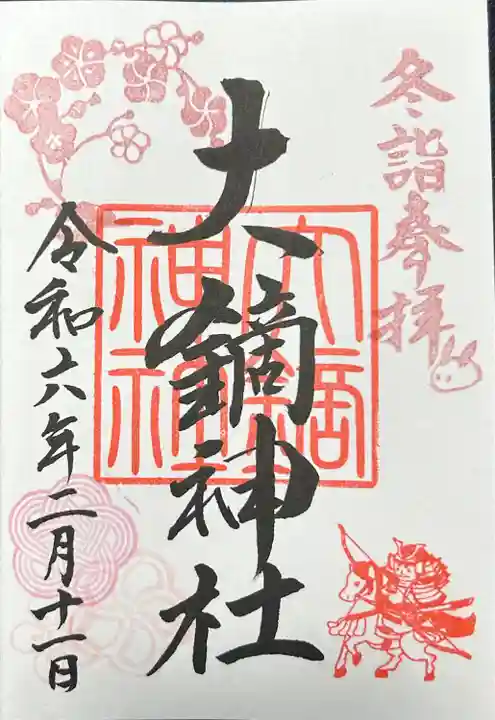 冬詣奉拝
大鏑神社
令和六年二月十一日
大鏑
神社